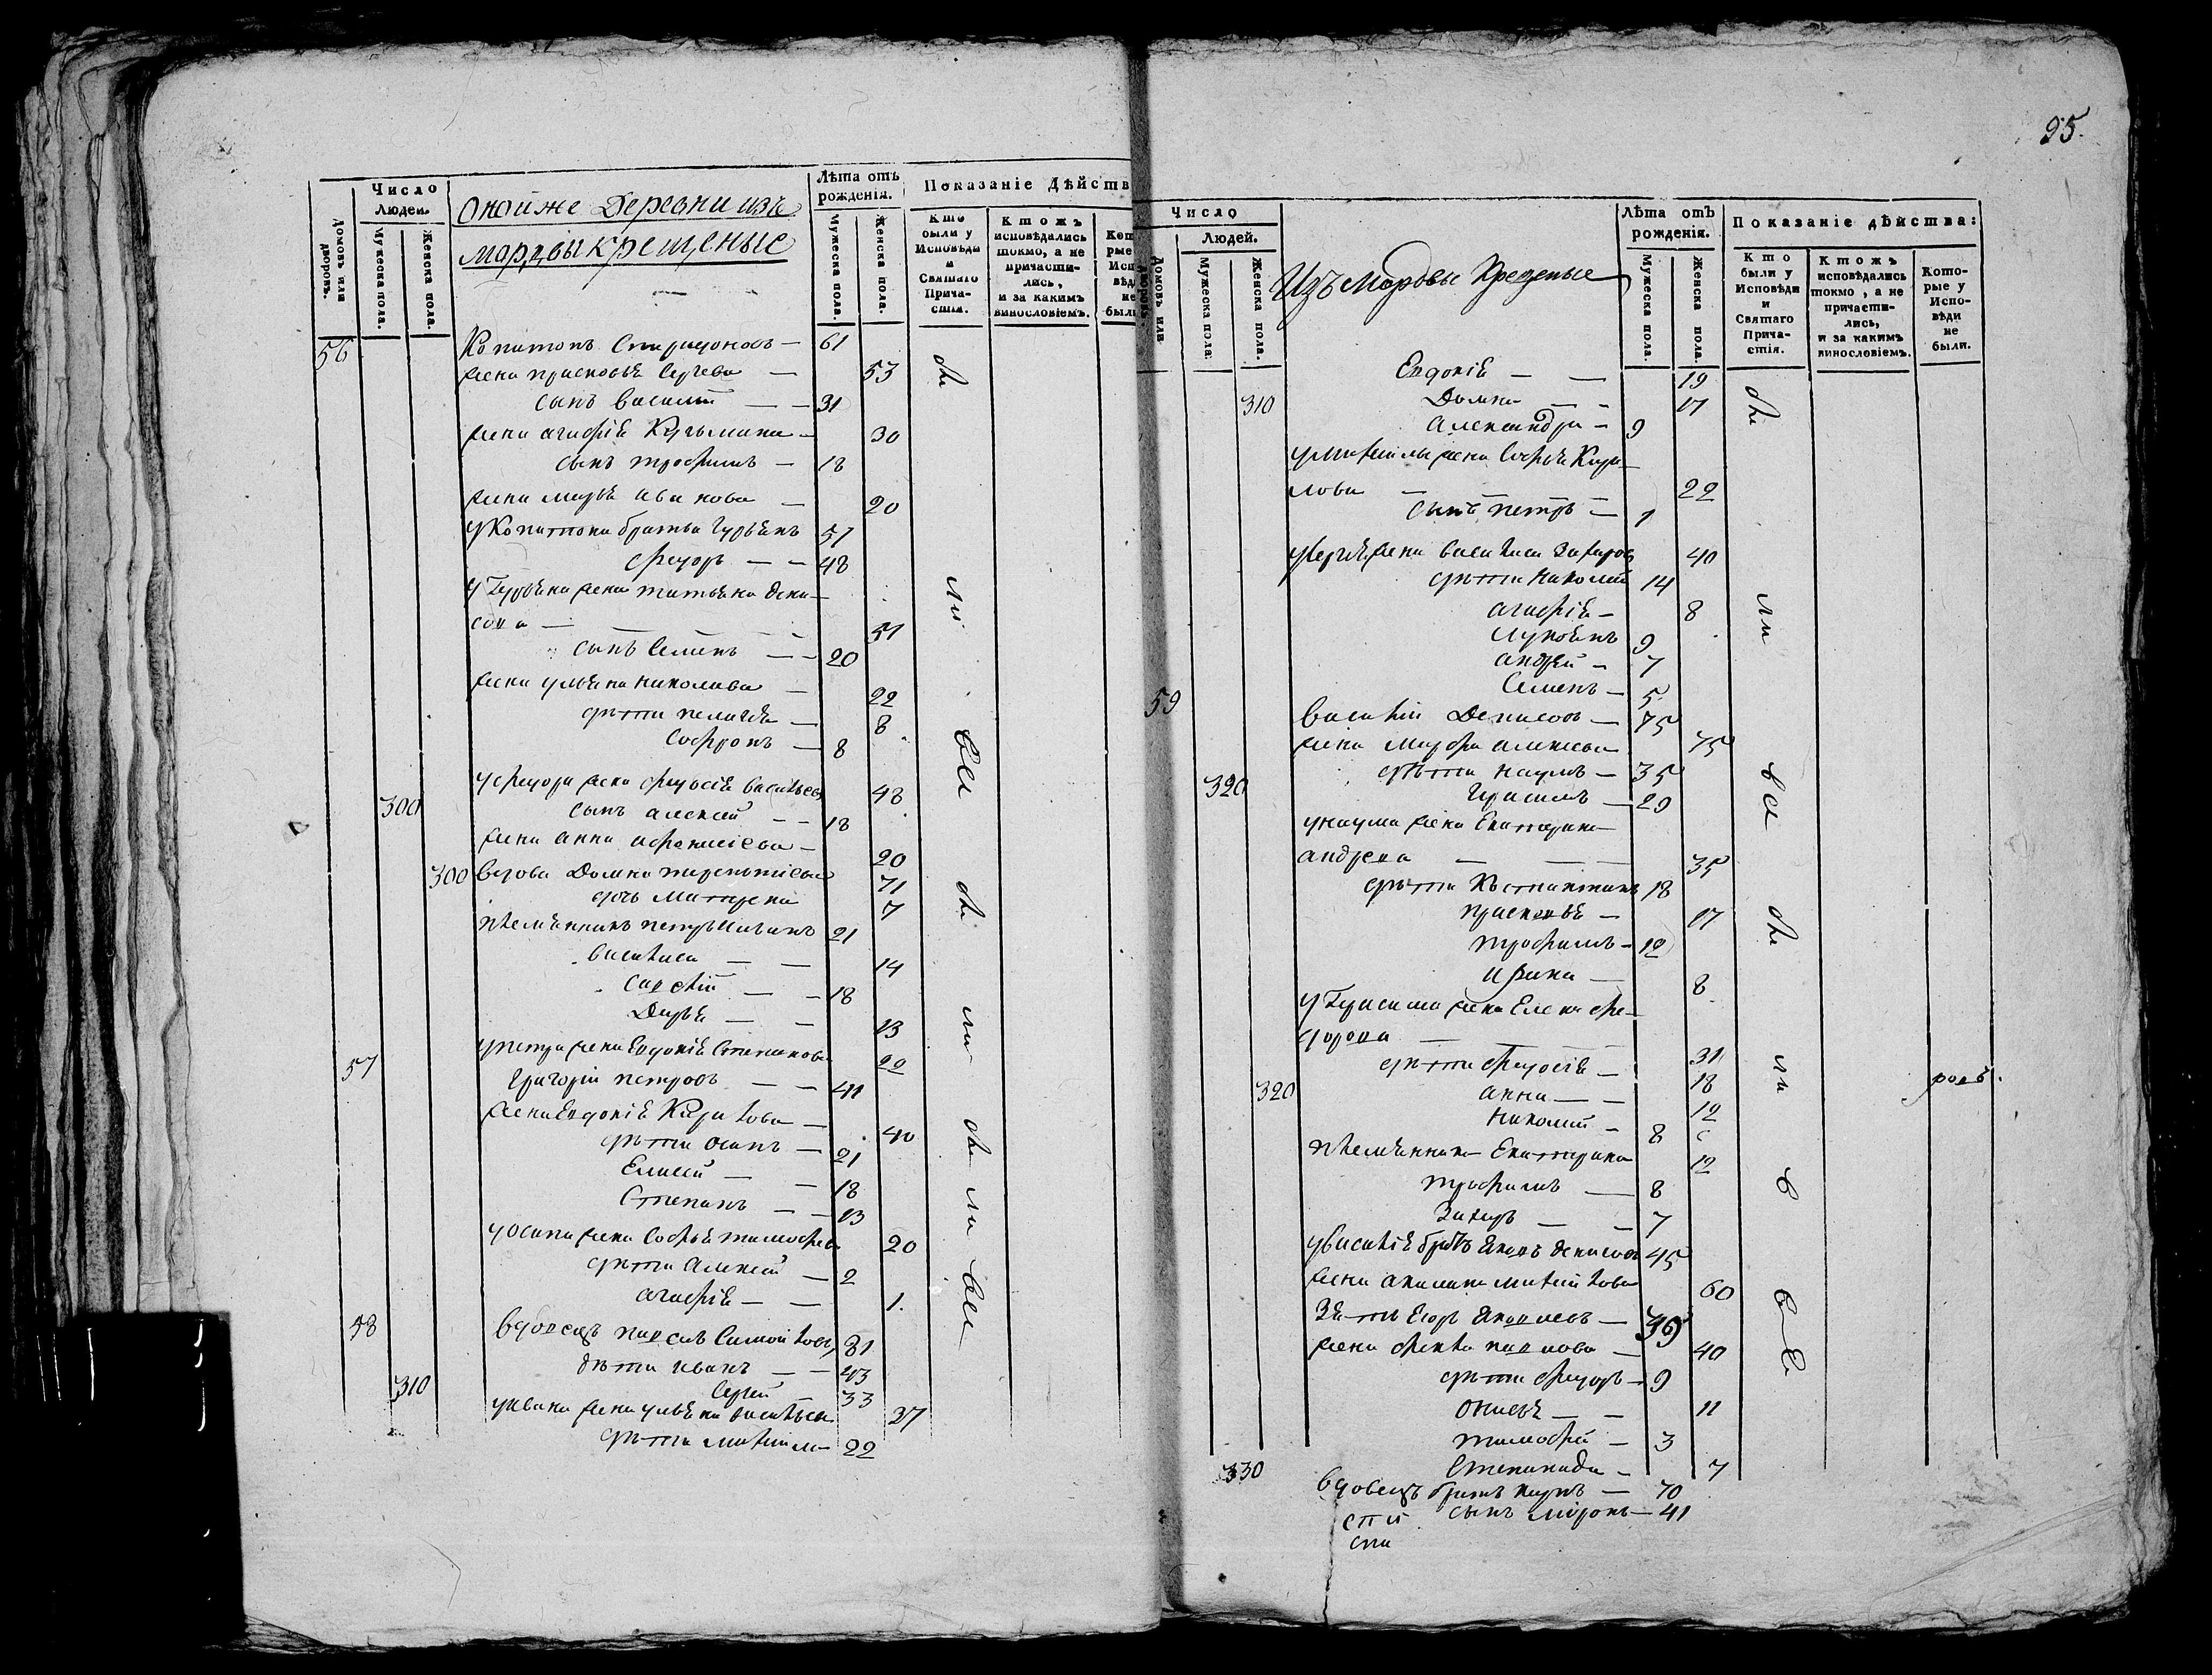 Домовъ или дворовъ.
Число Людей.
Мужеска пола.
Женска пола.
Оной же Деревни изъ
мордвы крещеные
Лѣта отъ рожденія.
Мужеска пола.
Женска пола.
Показаніе Дѣйств
Кто были у Исповѣди и Святаго Причастія.
Ктожъ исповѣдались токмо, а не причастились, и за какимъ винословіемъ.
56 Капитонъ Спиридоновъ — 61
жена прасковья Сергева — 53
сынъ василий — — 31
жена агафія Кузьмина — 30
сынъ трофимъ — 18
жена марья иванова — 20
у Капитона братья Гурьянъ 51
федоръ — — 48
у Гурьяна жена татьяна дени-
сова — — — — 51
сынъ Семенъ — — 20
жена ульяна николаева — 22
дѣти пелагѣя — 8
Софронъ — 8
у федора жена федосія васильева 48
300 сынъ алексей — — 18
жена анна афанасіева — 20
300 вдова Домна терентиева 71
дочь матрена 7
племянникъ петръ ивановъ 21
василиса — — 14
савелий — — 18
Дарья — — 13
у петра жена Евдокія Степанова 22
57 Григорій петровъ — — 41
жена Евдокія Кирилова — 40
дѣти осипъ — 21
Елисей — — 18
Степанъ — — 13
у осипа жена Софья тимофева 20
дѣти Алексей — 2
агафія — — 1.
58 вдовецъ павелъ Самойловъ, 81
дѣти иванъ — — 43
310 Сергей — 33
у ивана жена ульяна васильева 37
дѣти михаила — 22
95.
Домовъ или дворовъ.
Число Людей.
Мужеска пола.
Женска пола.
Изъ мордвы Крещеные
Лѣта отъ рожденія.
Мужеска пола.
Женска пола.
Показаніе дѣйства:
Кто были у Исповѣди и Святаго Причастія.
Ктожъ исповѣдались токмо, а не причастились, и за какимъ винословіемъ.
Которые у Исповѣди не были.
Евдокія — — 19
310 Домна — — 17
Александръ — 9
у михаилы жена Софья Кири-
лова — — — — 22
сынъ петръ — 1
у сергея жена василиса захаров 40
дѣти николай 14
агафія — 8
лукоянъ 9
андрей — 7
Семенъ — 5
59 василий Денисовъ — 75
жена марфа алексева 75
дѣти наумъ — 35
320 Герасимъ — 29
у наума жена Екатерина
андрева — — — 35
дѣти Костянтинъ 18
прасковья — 17
трофимъ — 12
ирина — 8
у Герасима жена Елена фе-
дорова — — — 31
дѣти федосія — 18
320 анна — — 12
николай — 8
племянника Екатерина 12
трофимъ — 8
Захаръ — — 7
у василія братъ яковъ денисовъ 45
жена акилина михайлова 60
Зять Егоръ яковлевъ — 39
жена фекла павлова — 40
дѣти федоръ — 9
Онисья — — 11
тимофей — 3
Степанида — 7
330 вдовецъ братъ карпъ — 70
сынъ миронъ — 41